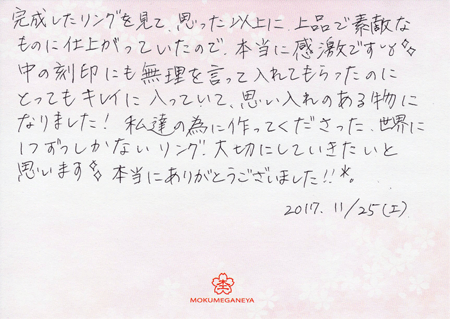 完成したリングを見て、思った以上に、上品で素敵な
ものに仕上がっていたので、本当に感激です
中の刻印にも無理を言って入れてもらったのに
とってもキレイに入っていて、思い入れのある物に
なりました！ 私達の為に作ってくださった、世界に
1つずつしかないリング！大切にしていきたいと
思います 本当にありがとうございました!!*。
2017. 11/25(土)
MOKUMEGANEYA